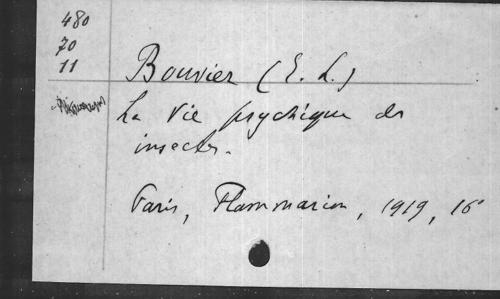 480
70
11
Bouvier (E. L.)
La Vie psychique des
insectes.
Paris, Flammarion, 1919, 16°